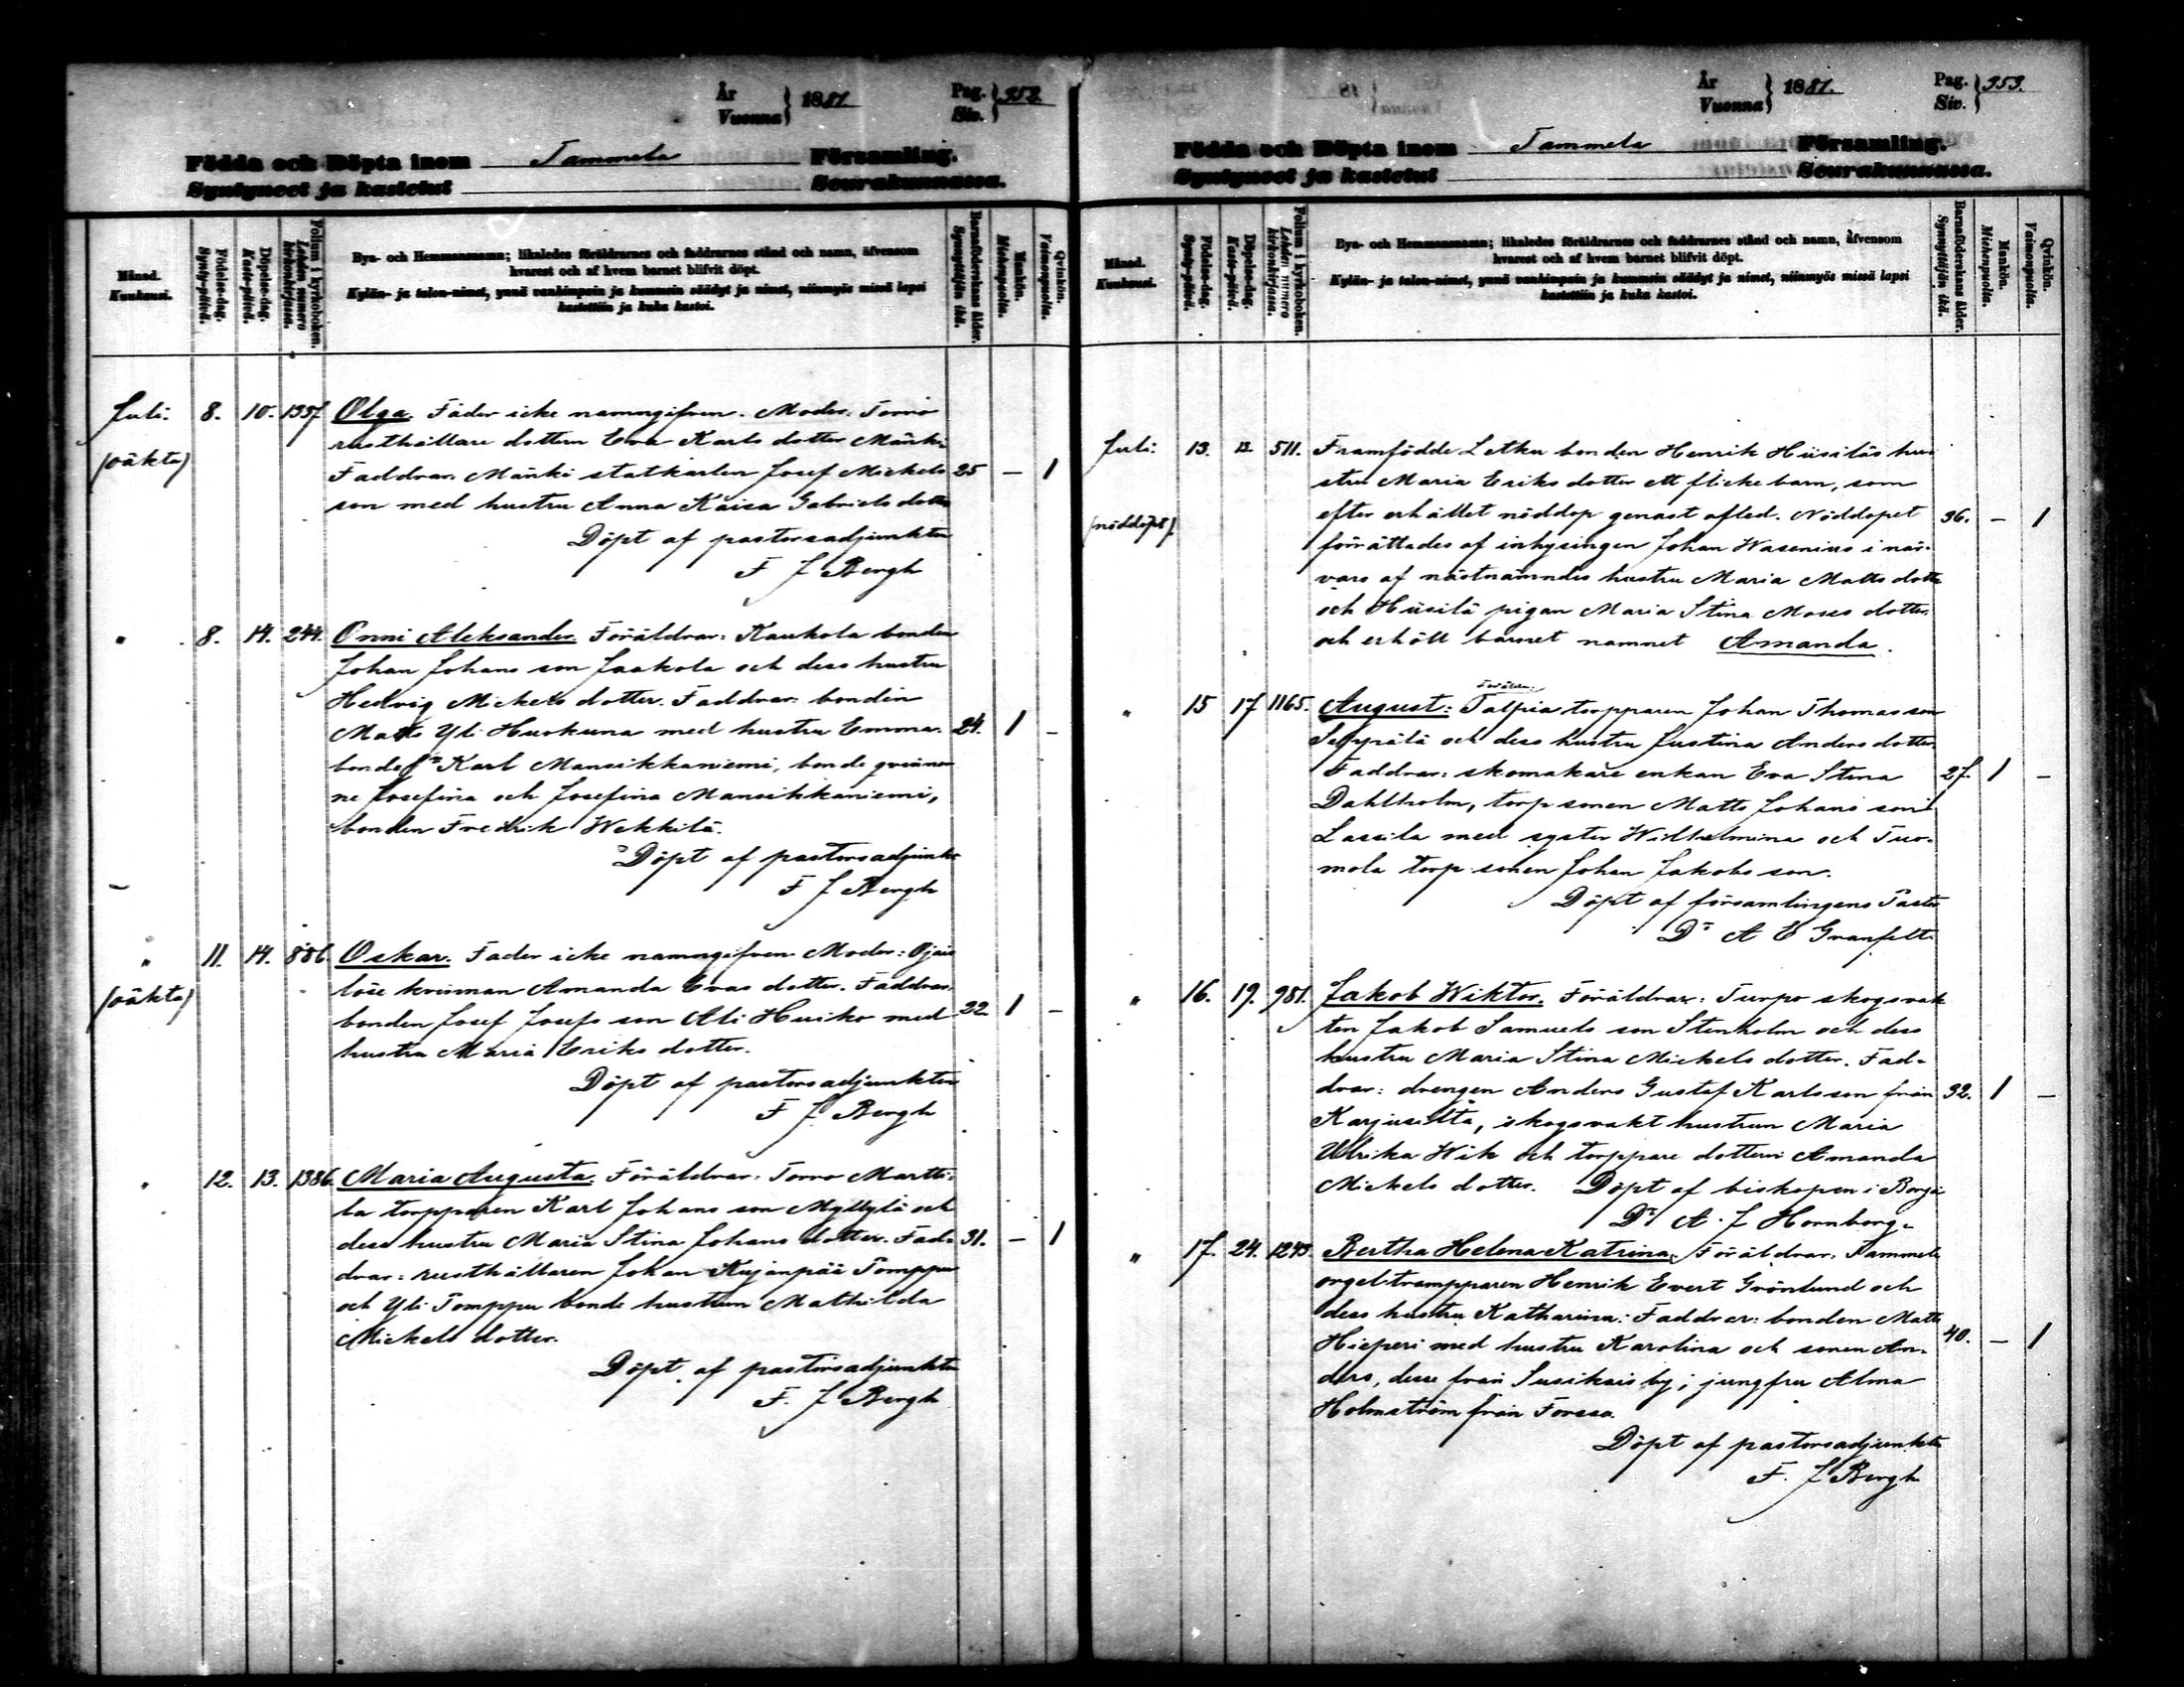 År
Vuonna } 1881
Pag.
Siv. } 358.
Födda och Döpta inom Tammela Församling.
Syntyneet ja kastetut Seurakunnassa.
Månad.
Kuukausi.
Födelse-dag.
Synty-päivä.
Döpelse-dag.
Kaste-päivä.
Folium i kyrkoboken.
Lehden numero kirkonkirjassa.
Bya- och Hemmansnamn; likaledes föräldrarnes och faddrarnes stånd och namn, äfvensom
hvarest och af hvem barnet blifvit döpt.
Kylän- ja talon-nimet, ynnä vanhinpain ja kummein säädyt ja nimet, niinmyös missä lapsi
kastettiin ja kuka kastoi.
Barnaföderskans ålder.
Synnyttäjän ikä.
Mankön.
Miehenpuolta.
Qvinkön.
Vaimonpuolta.
Juli. 8. 10. 1357 Olga. Fader icke namngifven. Moder: Torro
rusthållare dottern Eva Karls dotter Mänki
(oäkta) Faddrar: Mänki statkarlen Josef Mickels 25 — 1
son med hustru Anna Kaisa Gabriels dotter
Döpt af pastorsadjunkten
F J Bergh
" 8. 14. 244. Onni Aleksander. Föräldrar: Kaukola bonden
Johan Johans son Jaakola och dess hustru
Hedvig Mickels dotter. Faddrar: bonden
Matts Yli Huokuna med hustru Emma. 24. 1 —
bonde Karl Mansikkaniemi, bonde qvinnor
ne Josefina och Josefina Mansikkaniemi,
bonden Fredrik Wekkilä.
Döpt af pastorsadjunkt
F J Bergh
" 11. 14. 886. Oskar. Fader icke namngifven Moder: Ojais
(oäkta) löse kvinnan Amanda Evas dotter. Faddrar:
bonden Josef Josefs son Ali Huiko med 22 1 —
hustru Maria Eriks dotter.
Döpt af pastorsadjunkten
F J Bergh
" 12. 13. 1386. Maria Augusta. Föräldrar: Torro Martti-
la torpparen Karl Johans son Myllylä och
dess hustru Maria Stina Johans dotter. Fad- 31. — 1
drar: rusthållaren Johan Kujanpää Tomppu
och Yli Tomppu bonde hustrun Mathilda
Mickels dotter.
Döpt af pastorsadjunkten
F. J Bergh
År
Vuonna } 1881.
Pag.
Siv. } 359.
Födda och Döpta inom Tammela Församling.
Syntyneet ja kastetut Seurakunnassa.
Månad.
Kuukausi.
Födelse-dag.
Synty-päivä.
Döpelse-dag.
Kaste-päivä.
Folium i kyrkoboken.
Lehden numero kirkonkirjassa.
Bya- och Hemmansnamn; likaledes föräldrarnes och faddrarnes stånd och namn, äfvensom
hvarest och af hvem barnet blifvit döpt.
Kylän- ja talon-nimet, ynnä vanhinpain ja kummein säädyt ja nimet, niinmyös missä lapsi
kastettiin ja kuka kastoi.
Barnaföderskans ålder.
Synnyttäjän ikä.
Mankön.
Miehenpuolta.
Qvinkön.
Vaimonpuolta.
Juli. 13. 13 511. Framfödde Letku bonden Henrik Hiisiläs hu-
stru Maria Eriks dotter ett flickebarn, som
(nöddöpt) efter erhållet nöddop genast afled. Nöddopet 36. — 1
förrättades af inhysingen Johan Wasenius i när-
varo af nästnämndes hustru Maria Matts dotter
och Hiisilä pigan Maria Stina Moses dotter.
och erhöll barnet namnet Amanda.
" 15 17 1165. August: Föräldrar: Talpia torpparen Johan Thomas son
Seppälä och dess hustru Justina Anders dotter.
Faddrar: skomakare enkan Eva Stina 27. 1 —
Dahlholm, torp sonen Matts Johans son
Lassila med syster Wilhelmina och Tuo-
mola torp sonen Johan Jakobs son.
Döpt af församlingens Pastor
Dr A E Granfelt
" 16. 19. 981. Jakob Wiktor. Föräldrar: Turpo skogsvak
ten Jakob Samuels son Stenholm och dess
hustru Maria Stina Mickels dotter. Fad-
drar: drengen Anders Gustaf Karlsson från 32. 1 —
Karjusilta, skogsvakt hustrun Maria
Ulrika Wik och torppare dottern Amanda
Mickels dotter. Döpt af biskopen i Borgå
Dr A. J Hornborg.
" 17. 24. 1243. Bertha Helena Katrina. Föräldrar: Tammela
orgeltrampparen Henrik Evert Grönlund och
dess hustru Katharina. Faddrar: bonden Matts
Hieperi med hustru Karolina och sonen An- 40. — 1
ders, desse från Susikais by; jungfru Alma
Holmström från Forssa.
Döpt af pastorsadjunkten
F. J Bergh